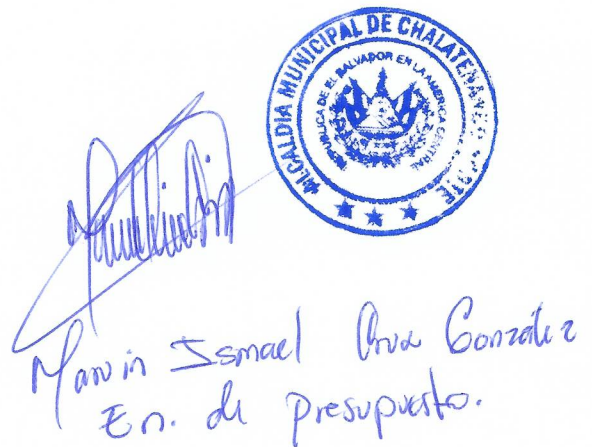 ALCALDIA MUNICIPAL DE CHALATENANGO
REPUBLICA DE EL SALVADOR EN LA AMERICA CENTRAL
Marvin Ismael Cruz González
En. de presupuesto.